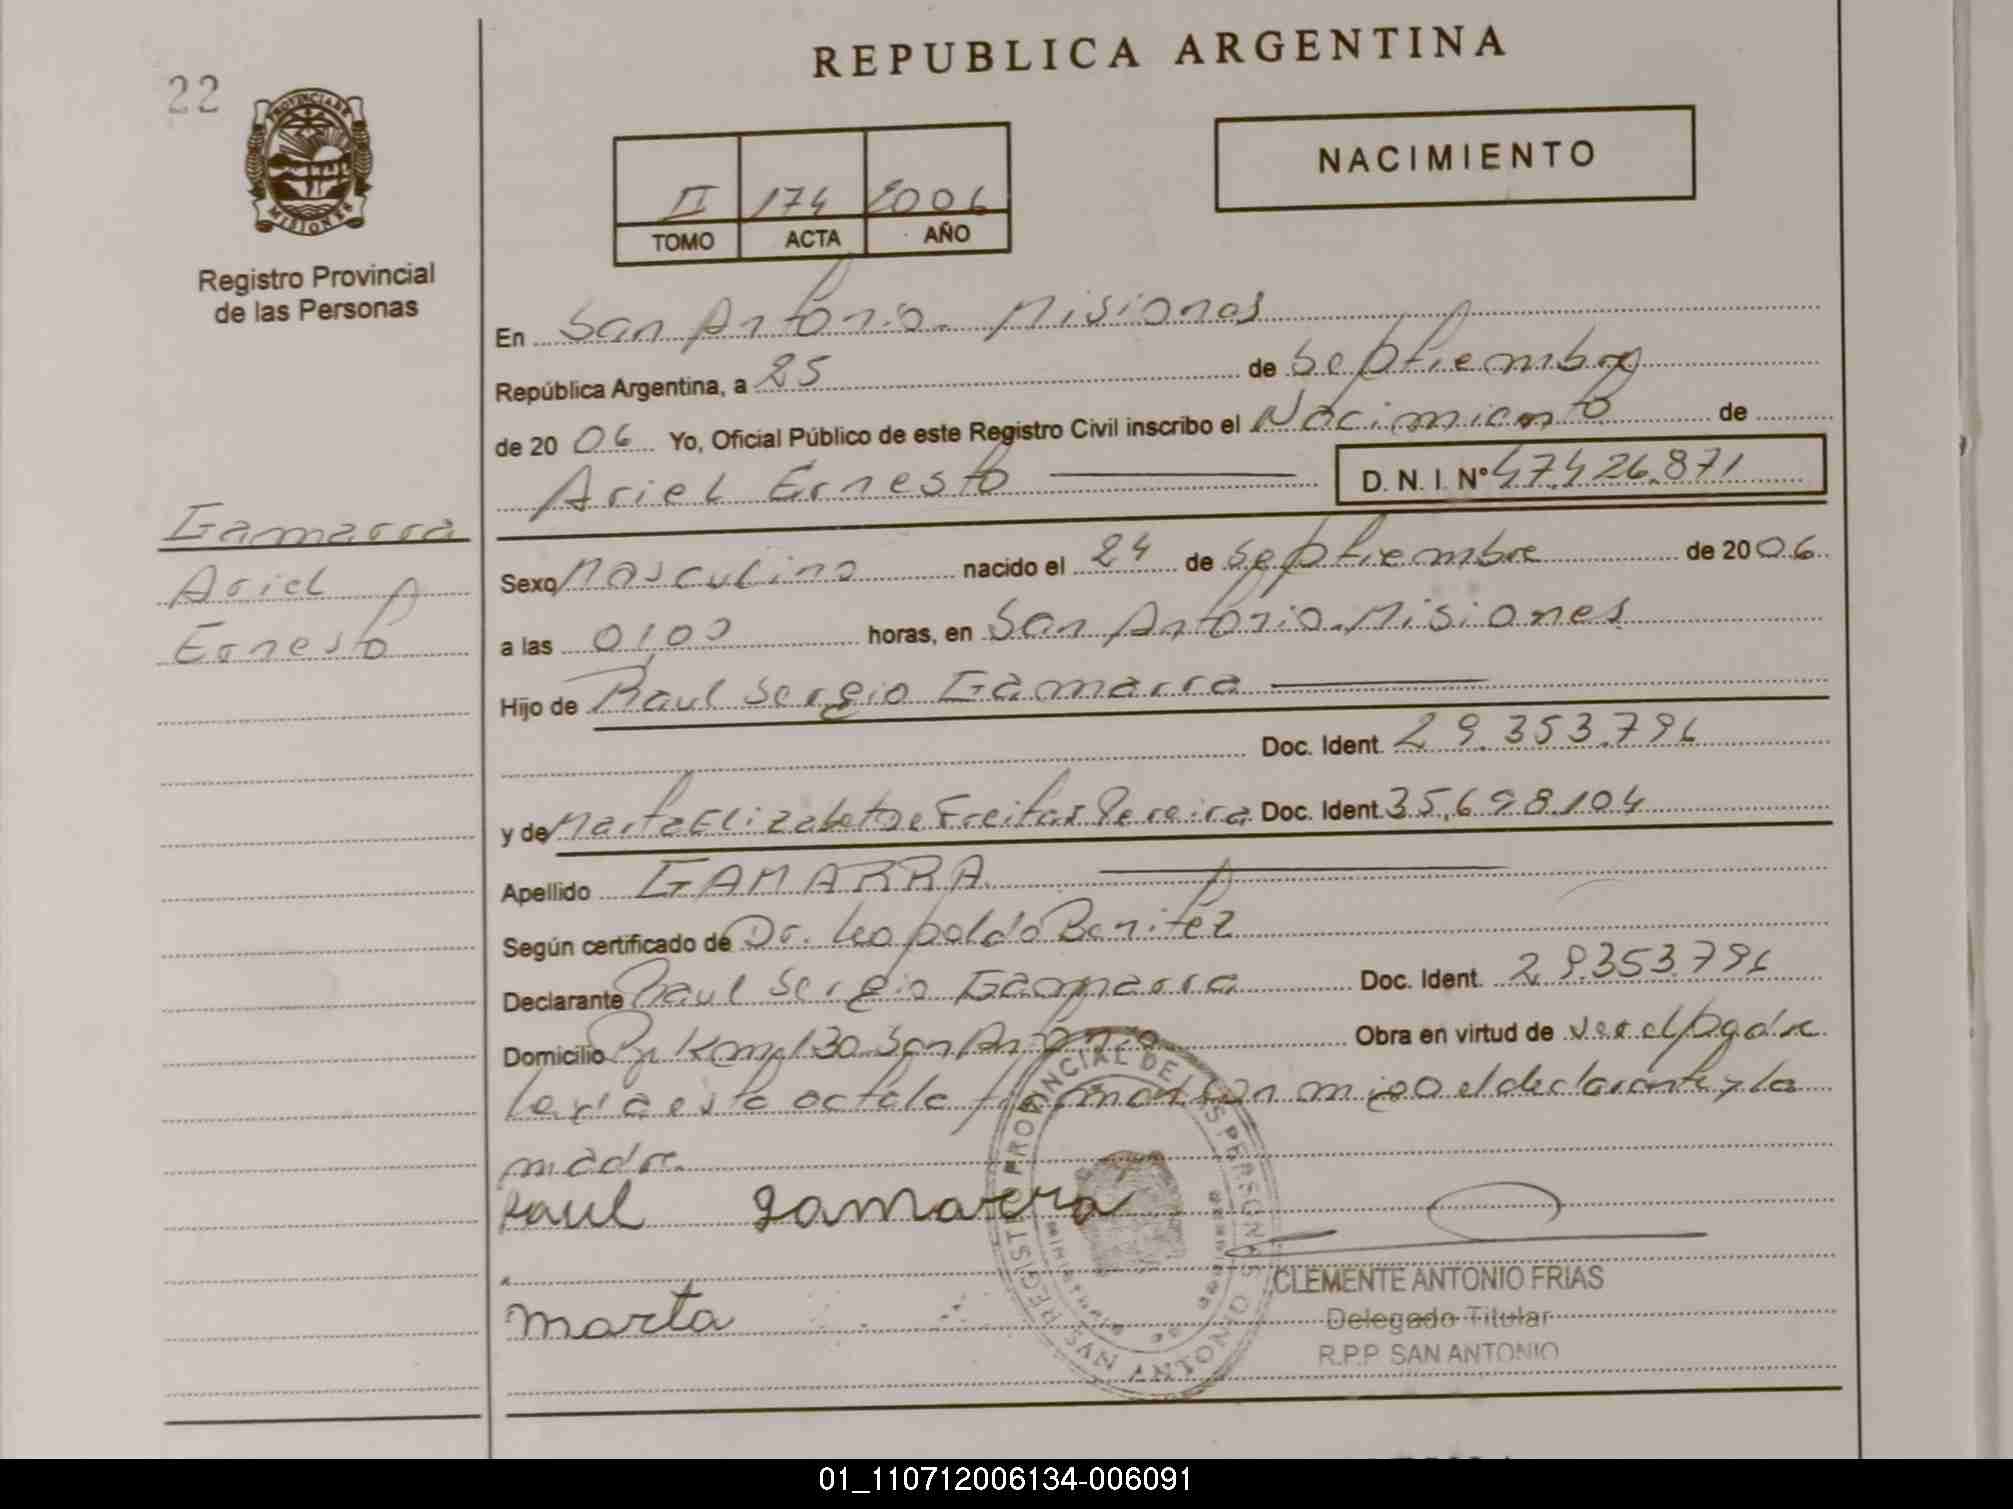 REPUBLICA ARGENTINA
22
PROVINCIA DE MISIONES
Registro Provincial
de las Personas
NACIMIENTO
II 174 2006
TOMO ACTA AÑO
En San Antonio. Misiones
República Argentina, a 25 de Septiembre
de 2006 Yo, Oficial Público de este Registro Civil inscribo el Nacimiento de
Ariel Ernesto D. N. I. Nº 47.426.871
Gamarra
Ariel
Ernesto
Sexo Masculino nacido el 24 de Septiembre de 2006
a las 01,00 horas, en San Antonio. Misiones
Hijo de Raul Sergio Gamarra
Doc. Ident. 29.353.796
y de Marta Elizabet De Freitas Pereira Doc. Ident. 35,698.104
Apellido GAMARRA
Según certificado de Dr. Leopoldo Benitez
Declarante Raul Sergio Gamarra Doc. Ident. 29.353.796
Domicilio Pje Kempl 30 San Antonio Obra en virtud de ser el padre
leida esta acta la firman con migo el declarante y la
madre.
Raul Gamarra
REGISTRO PROVINCIAL DE LAS PERSONAS
SAN ANTONIO
CLEMENTE ANTONIO FRIAS
marta
Delegado Titular
R.P.P. SAN ANTONIO
01_110712006134-006091